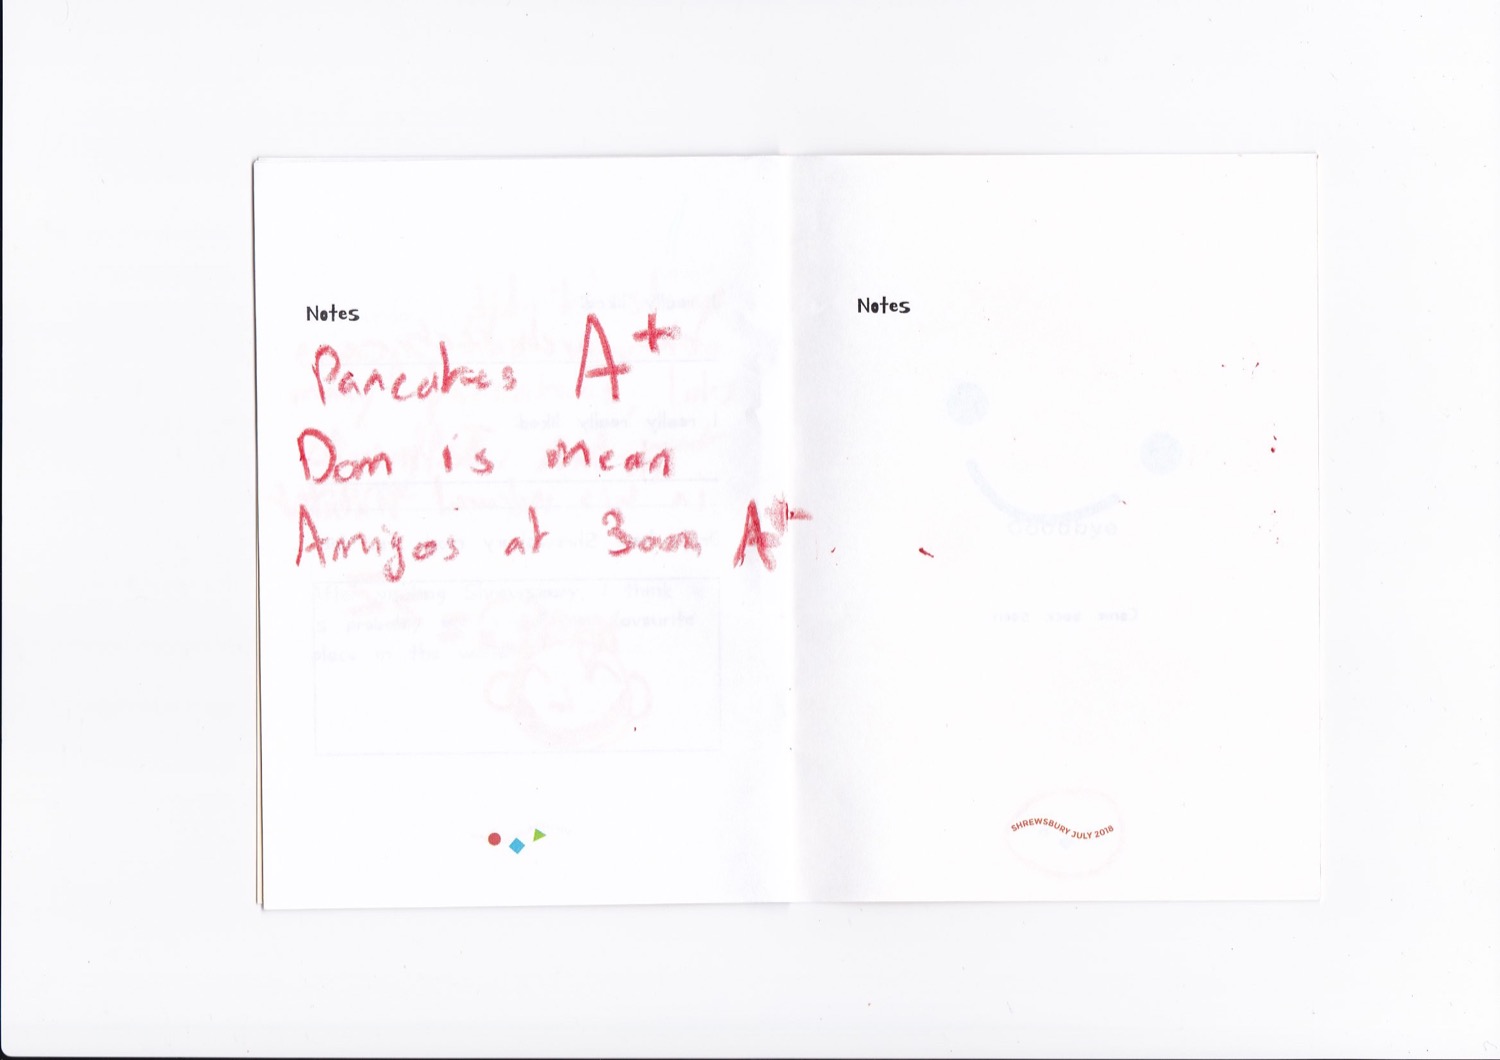 Notes
Pancakes A+
Dom is mean
Amigos at 3am A+
Notes
SHREWSBURY JULY 2018